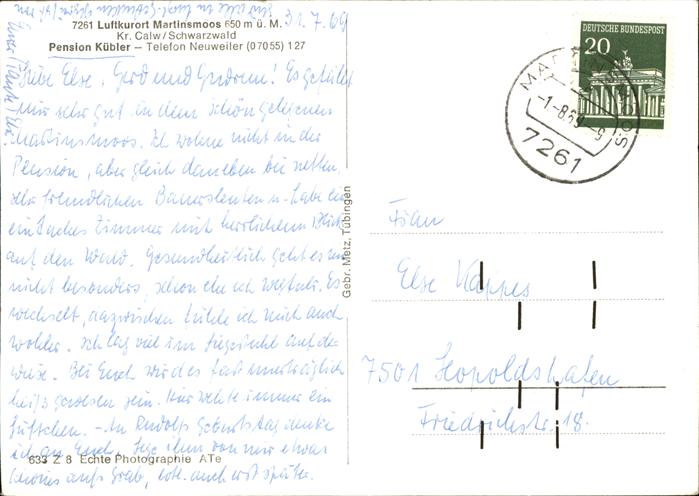 31.7.69
7261 Luftkurort Martinsmoos 650 m ü. M.
Kr. Calw/Schwarzwald
Pension Kübler – Telefon Neuweiler (07055) 127
Liebe Else, Gerd und Gudrun! Es gefällt
mir sehr gut in dem schön gelegenen
Martinsmoos. Ich wohne nicht in der
Pension, aber gleich daneben bei netten,
sehr freundlichen Bauersleuten u. habe ein
einfaches Zimmer mit herrlichem Blick
auf den Wald. Gesundheitlich geht es mir
nicht besonders, schon ehe ich wegfuhr. Es
wechselt, inzwischen fühle ich mich auch
wohler. Ich lag viel im Liegestuhl auf der
Wiese. Bei Euch wird es fast unerträglich
heiß gewesen sein. Hier wehte immer ein
Lüftchen. – An Rudolfs Geburtstag denke
ich an Euch. Lege ihm von mir etwas
Schönes aufs Grab, evtl. auch erst später.
633 Z 8 Echte Photographie ATe
Gebr. Metz, Tübingen
DEUTSCHE BUNDESPOST
20
MARTINSMOOS
-1.-8.69-9
7261
Frau
Else Kappes
7501 Leopoldshafen
Friedrichstr. 18.